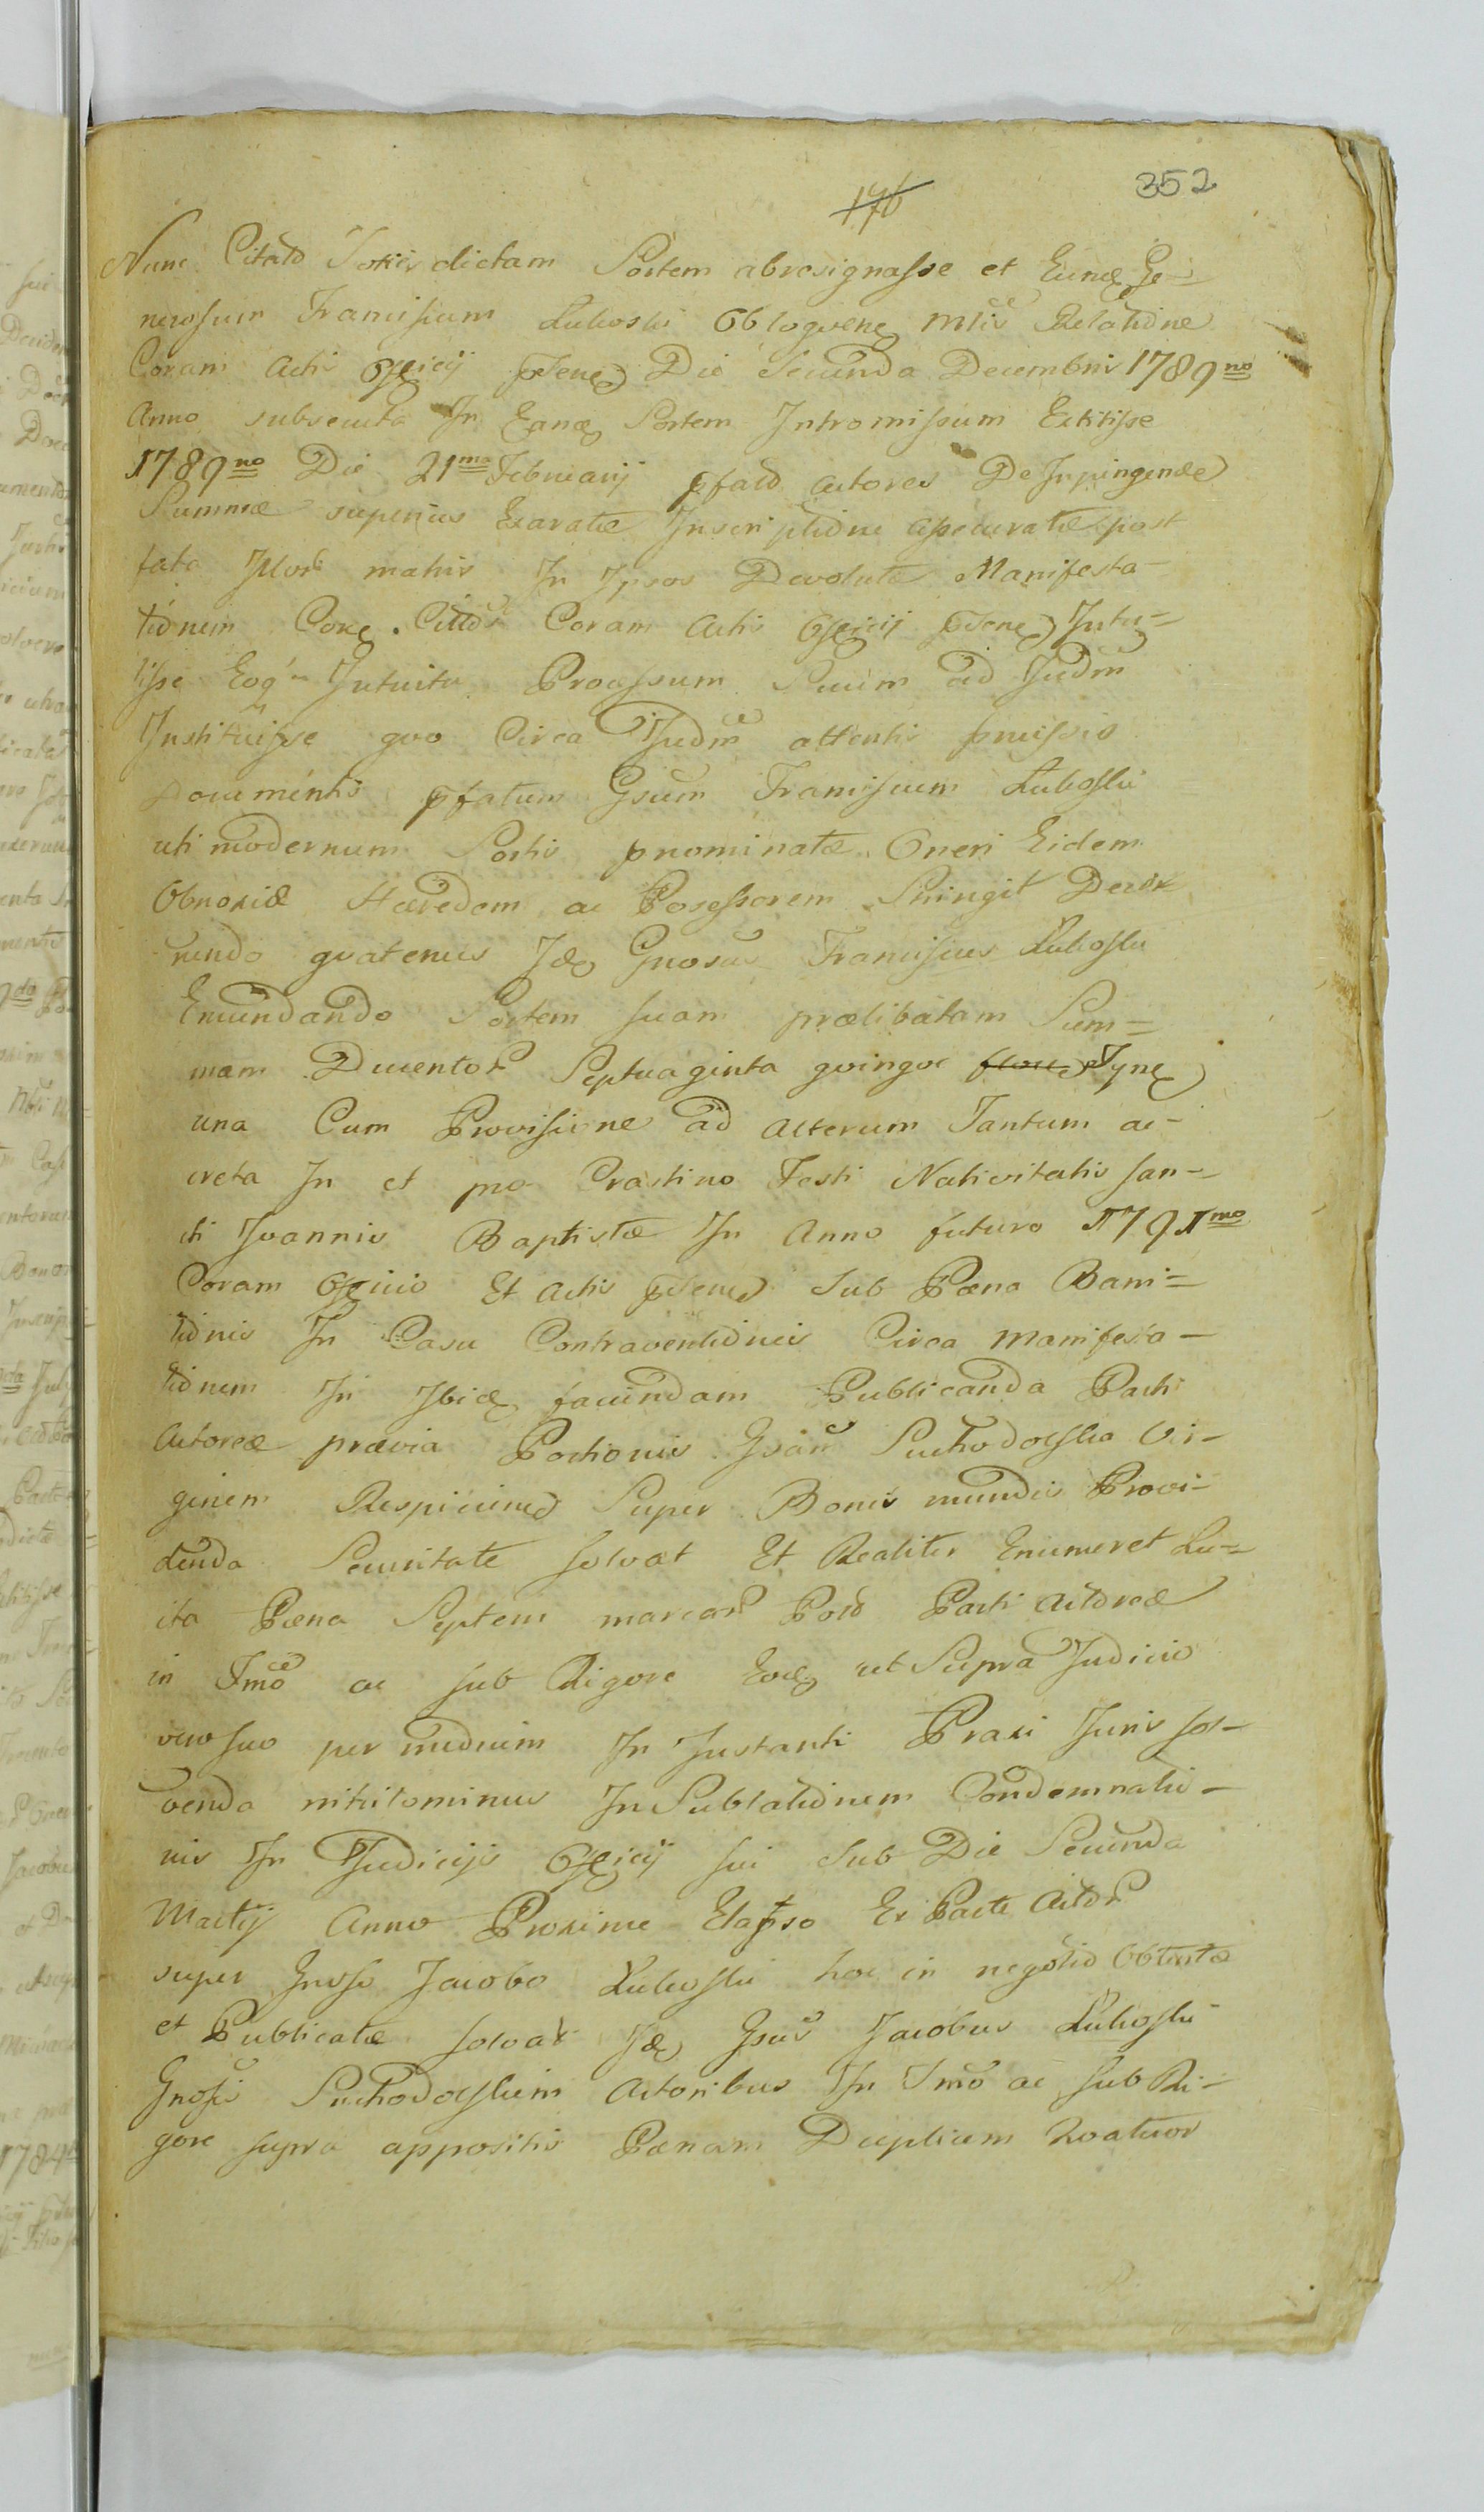 176
352
Nunc Citato Toties dictam Sortem abresignasse et Eunde Ge-
nerosum Franciscum Łukoski Obloquene mlis Relatione
Coram Actis Officij psene Die Secunda Decembris 1789no
Anno subsecuta In Eande Sortem Intromissum Extitisse
1789no Die 21ma Februarij pfato Actores De Inpingende
Summæ superius Exaratæ Inscriptione assecuratæ post
fata matris In Ipsos Devolutæ Manifesta-
tionem Cittos Coram Actis Officij psene Intu-
lisse Eoq Intuitu Processum Suum ad Judm
Instituisse quo Circa Judm attentis pmissis
Documentis pfatum Gsum Franciscum Łukoski
uti modernum Sortis pnominatæ Oneri Eidem
Obnoxiæ Hæredem ac Posessorem Stringit Decer
nendo quatenus Ide Gnosus Franciscus Łukoski
Emundando Sortem suam prælibatam Sum-
mam Ducentor Septuaginta quinque Tyne
una Cum Provisione ad alterum Tantum ac-
creta In et pro Crastino Festi Nativitatis san-
cti Joannis Baptistæ In Anno futuro 1791mo
Coram Officio Et Actis psene sub Pæna Bani-
tionis In Casu Contraventionis Circa manifesta-
tionem In Ibide faciendam Publicanda Parti
Actoreæ prævia Portionis Gsam Suchodolska Vir-
ginem Respiciene Super Bonis mundis Provi-
denda Securitate solvat Et Realiter Enumeret Lu-
ita Pæna Septem marcar Pold Parti Actoreæ
in Imo ac sub Rigore Eode ut Supra Judicio
vero suo per medium In Instanti Praxi Juris sol-
venda nihilominus In Sublationem Condemnatio-
nis In Judicijs Officij sui sub Die Secunda
Martij Anno Proxime Elapso Ex Parte Actor
super Gnoso Jacobo Łukoski hoc in negotio Obtentæ
et Publicatæ solvat Ide Gsus Jacobus Łukoski
Gnosis Suchodolskim Actoribus In Imo ac sub Ri-
gore supra appositis Pænam Duplicem Quatuor